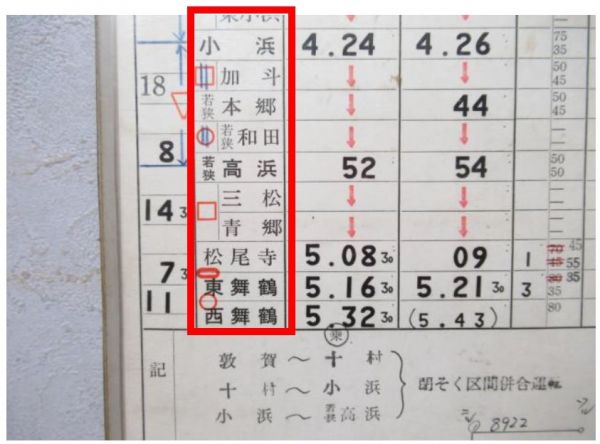 小浜 4.24 4.26 75 35
加斗 50 45
18
若狭本郷 44 50 45
8 若狭和田
若狭高浜 52 54 50 50
三松
14 3
青郷
松尾寺 5.08 30 09 1 45 55
7 3 東舞鶴 5.16 30 5.21 30 3 35 35
11 西舞鶴 5.32 30 (5.43) 80
乗
記
敦賀～十村
十村～小浜 閉そく区間併合運転
小浜～若狭高浜
8922